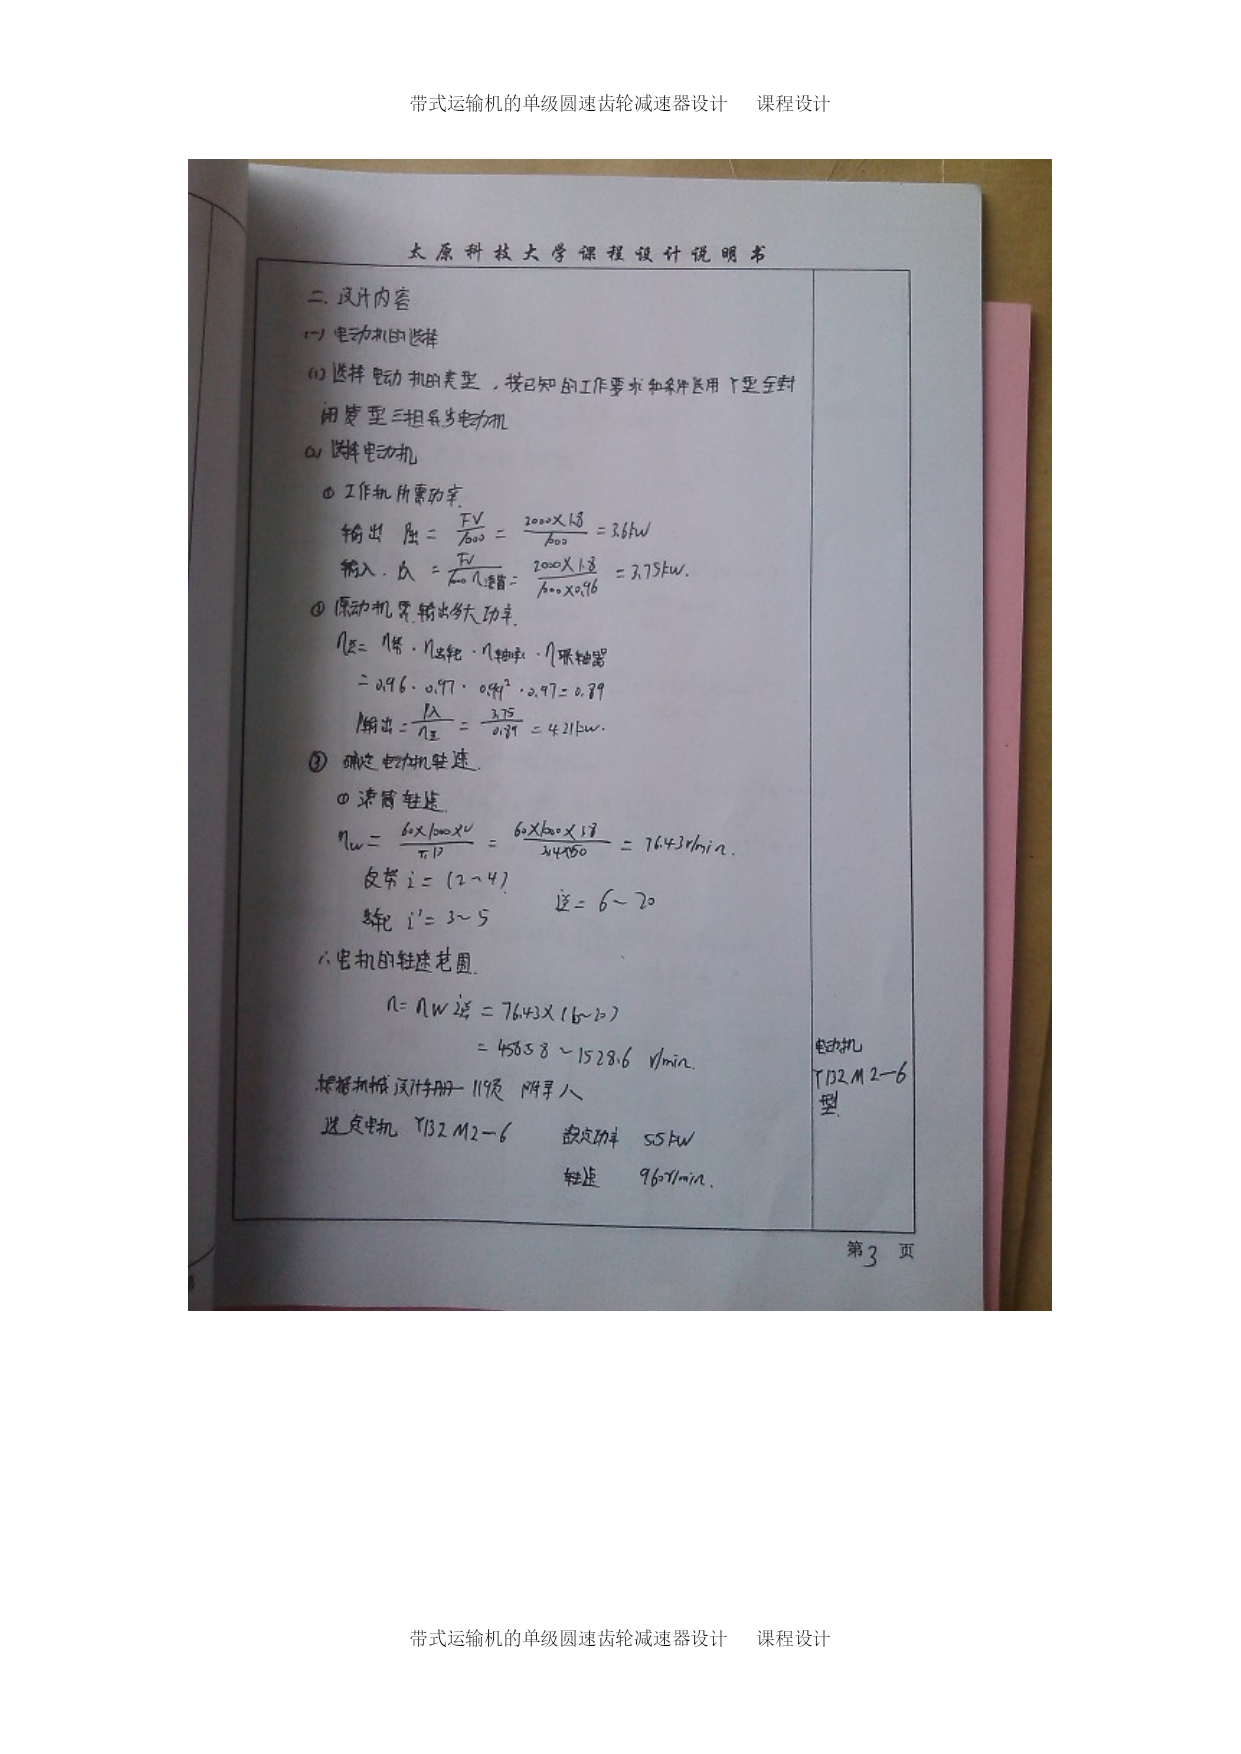 带式运输机的单级圆速齿轮减速器设计 课程设计
太原科技大学课程设计说明书
二、设计内容
(一) 电动机的选择
(1) 选择电动机的类型，按已知的工作要求和条件选用Y型全封
闭笼型三相异步电动机
(2) 选择电动机
① 工作机所需功率
输出 P出 = FV/1000 = 2000×1.8/1000 = 3.6kW
输入 P入 = FV/1000η滚筒 = 2000×1.8/1000×0.96 = 3.75kW.
② 原动机需输出多大功率.
η总 = η带·η齿轮·η轴承·η联轴器
= 0.96·0.97·0.99²·0.97 = 0.89
P输出 = P入/η总 = 3.75/0.89 = 4.21kW.
③ 确定电动机转速.
① 滚筒转速
nw = 60×1000×V/πD = 60×1000×1.8/3.14×450 = 76.43r/min.
皮带 i = (2~4)
i总 = 6~20
齿轮 i' = 3~5
∴电机的转速范围.
n = nw i总 = 76.43×(6~20)
= 458.58~1528.6 r/min.
根据机械设计手册 119页 附录八
选定电机 Y132M2-6 额定功率 5.5kW
转速 960r/min.
电动机
Y132M2-6
型.
第3页
带式运输机的单级圆速齿轮减速器设计 课程设计